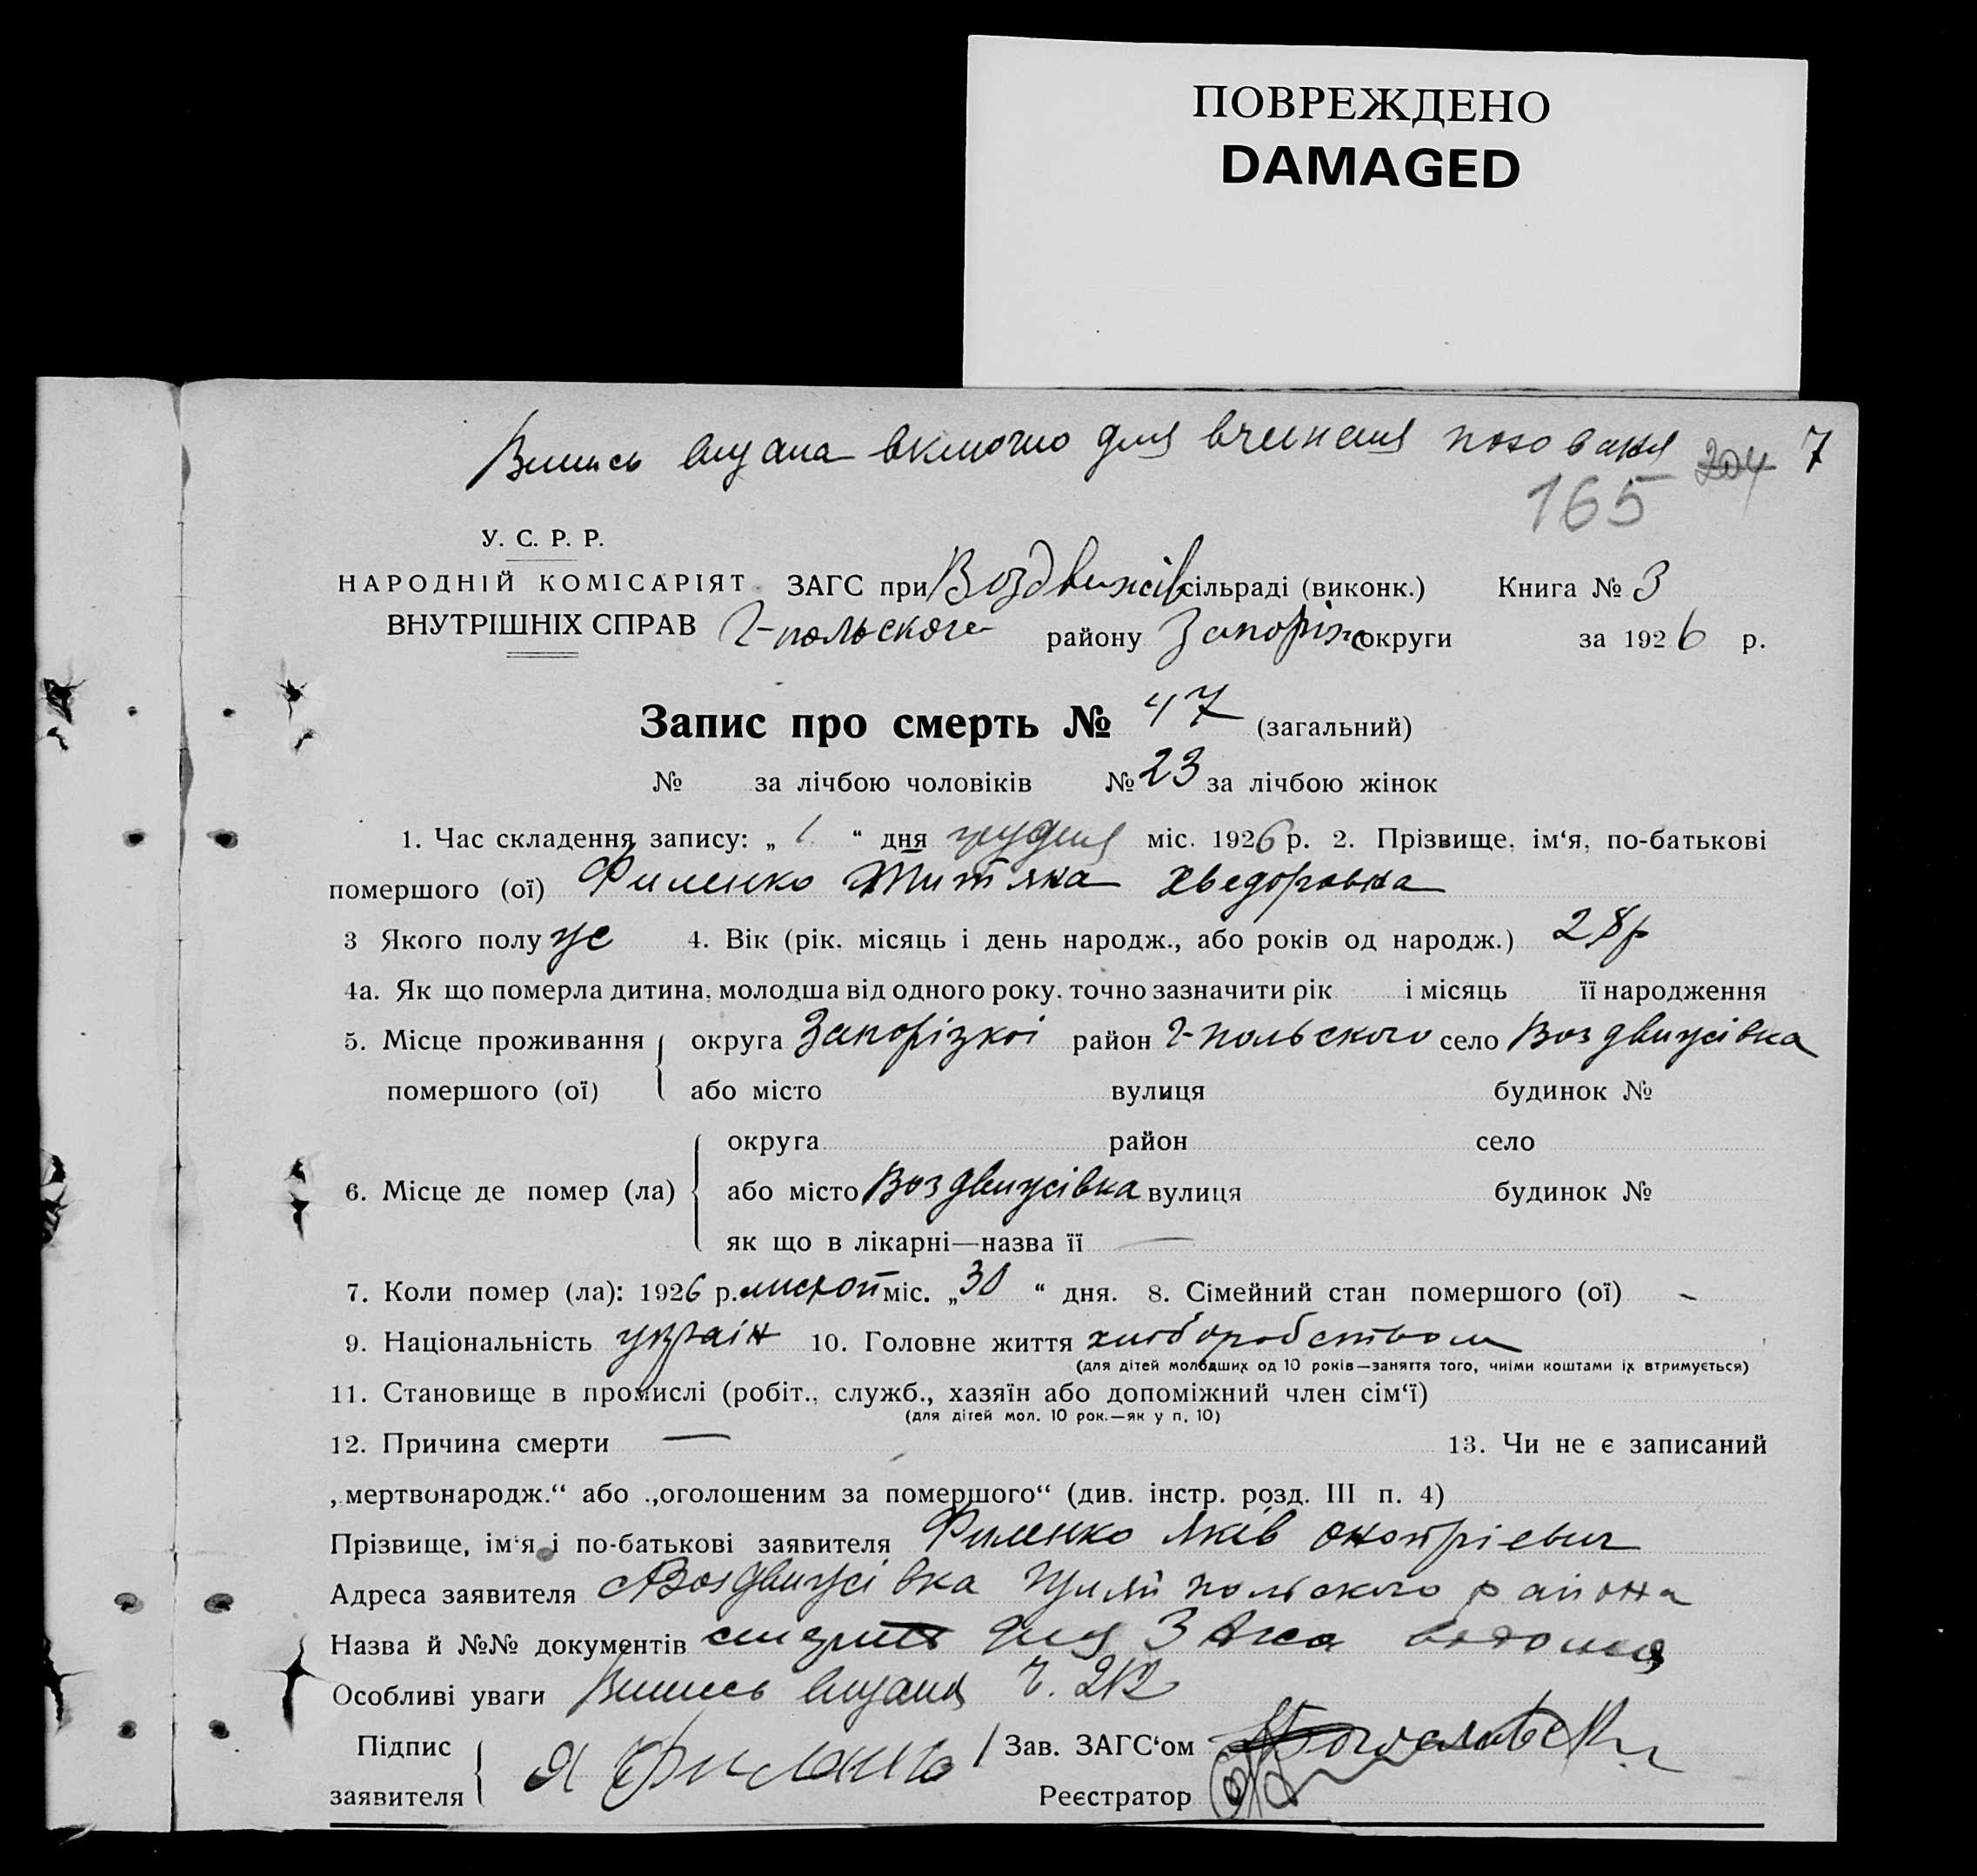 ПОВРЕЖДЕНО
DAMAGED
Випись видана вкмочно для вчинення поховання 204 7
165
У. С. Р. Р.
НАРОДНІЙ КОМІСАРІЯТ ЗАГС при Воздвижів сільраді (виконк.) Книга № 3
ВНУТРІШНІХ СПРАВ Г-польского району Запоріж округи за 1926 р.
Запис про смерть № 47 (загальний)
№ за лічбою чоловіків № 23 за лічбою жінок
1. Час складення запису: „ 1 “ дня грудня міс. 1926 р. 2. Прізвище, ім‘я, по-батькові
помершого (ої) Филенко Тит яна Хведоровна
3 Якого полу же 4. Вік (рік. місяць і день народж., або років од народж.) 28р
4а. Як що померла дитина, молодша від одного року, точно зазначити рік і місяць її народження
5. Місце проживання помершого (ої) округа Запорізкоі район Г-польского село Воздвижівка
або місто вулиця будинок №
6. Місце де помер (ла) округа район село
або місто Воздвижівка вулиця будинок №
як що в лікарні—назва її —
7. Коли помер (ла): 1926 р. листоп міс. „30 “ дня. 8. Сімейний стан помершого (ої) -
9. Національність україн 10. Головне життя хліборобством
(для дітей молодших од 10 років—заняття того, чиїми коштами їх втримується)
11. Становище в промислі (робіт., служб., хазяїн або допоміжний член сім‘ї)
(для дітей мол. 10 рок.—як у п. 10)
12. Причина смерти — 13. Чи не є записаний
„мертвонародж.“ або „оголошеним за помершого“ (див. інстр. розд. III п. 4)
Прізвище, ім‘я і по-батькові заявителя Филенко Яків Онопріевич
Адреса заявителя Воздвижівка Гуляй польского района
Назва й №№ документів для
Особливі уваги Випись видана Ч. 212
Підпис заявителя Я Филенко Зав. ЗАГС‘ом
Реєстратор